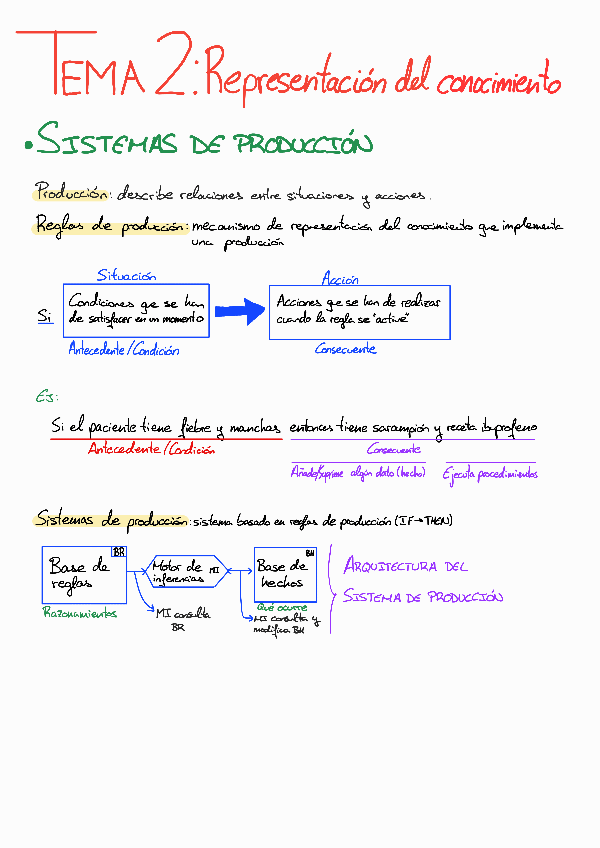 TEMA 2: Representación del conocimiento
• SISTEMAS DE PRODUCCIÓN
Producción: describe relaciones entre situaciones y acciones.
Reglas de producción: mecanismo de representación del conocimiento que implementa
una producción
Situación
Acción
Si
Condiciones que se han
de satisfacer en un momento
Acciones que se han de realizar
cuando la regla se "active"
Antecedente/Condición
Consecuente
Ej:
Si el paciente tiene fiebre y manchas entonces tiene sarampión y receta ibuprofeno
Antecedente/Condición
Consecuente
Añade/suprime algún dato (hecho)
Ejecuta procedimientos
Sistemas de producción: sistema basado en reglas de producción (IF→THEN)
BR
Base de
reglas
Razonamientos
Motor de MI
inferencias
MI consulta
BR
BH
Base de
hechos
Qué ocurre
MI consulta y
modifica BH
ARQUITECTURA DEL
SISTEMA DE PRODUCCIÓN